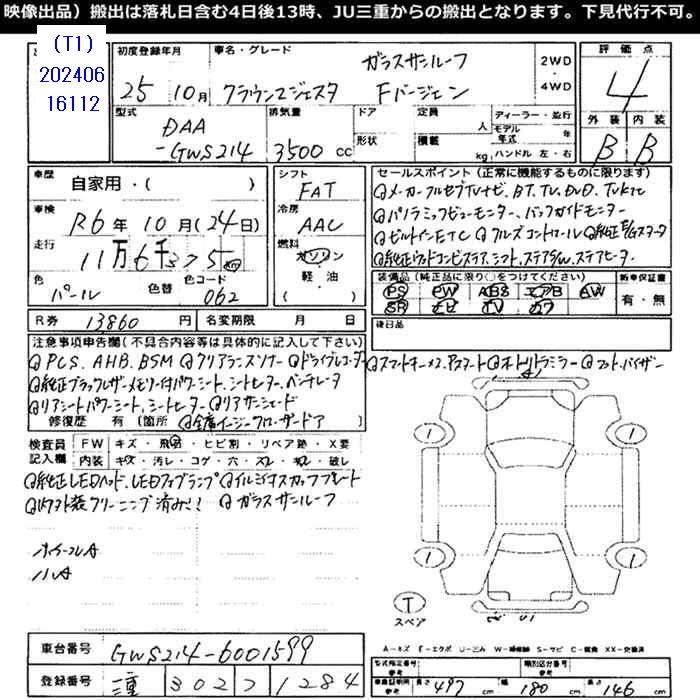 映像出品）搬出は落札日含む4日後13時、JU三重からの搬出となります。下見代行不可。
(T1)
202406
16112
初度登録年月
25 10月
車名・グレード
ガラスサンルーフ
クラウンマジェスタ Fバージョン
2WD
・
4WD
評価点
4
外装 内装
B B
型式
DAA
-GWS214
排気量
3500 cc
ドア
形状
定員
人
積載
kg
ディーラー・並行
モデル年式 年
ハンドル 左・右
車歴
自家用・( )
車検
R6年10月(24日)
走行
11万6千375 km
色
パール
色替
色コード
062
シフト
FAT
冷房
AAC
燃料
ガソリン
軽・油
( )
セールスポイント（正常に機能するものに限ります）
メーカーフルセグTVナビ、BT、TV、DVD、TVKit
パノラミックビューモニター、バックガイドモニター
ビルトインETC クルーズコントロール 純正E/Gスターター
純正ウッドコンビステア、シフト、ステアS/W、ステアヒーター
装備品（純正品に限り○をつけてください）
PS PW ABS エアB AW
SR ナビ TV カワ
新車保証書
有・無
後日品
R券 13860 円
名変期限 月 日
注意事項申告欄（不具合内容等は具体的に記入して下さい）
PCS、AHB、BSM クリアランスソナー ドライブレコーダー スマートキーx2、Pスタート オートリトラミラー フット・バイザー
純正ブラックレザーメモリー付パワーシート、シートヒーター、ベンチレータ
リアシートパワーシート、シートヒーター リアサンシェード
修復歴 有（箇所 全席イージークローザードア ）
検査員記入欄
FW キズ・飛石・ヒビ割・リペア跡・X要
内装 キズ・汚レ・コゲ・穴・スレ・キレ・破レ
純正LEDヘッド、LEDフォグランプ イルミネスカッフプレート
内外装クリーニング済み!! ガラスサンルーフ
ホイールA
ハA
1
1
1
1
T
スペア
A-キズ E-エクボ U-凹み W-補修跡 S-サビ C-腐食 XX-交換済
車台番号 GWS214-6001599
登録番号 三重 302 ひ 1284
型式指定番号
参考
類別区分番号
参考
車庫証明用
参考
長さ 497 cm 幅 180 cm 高さ 146 cm